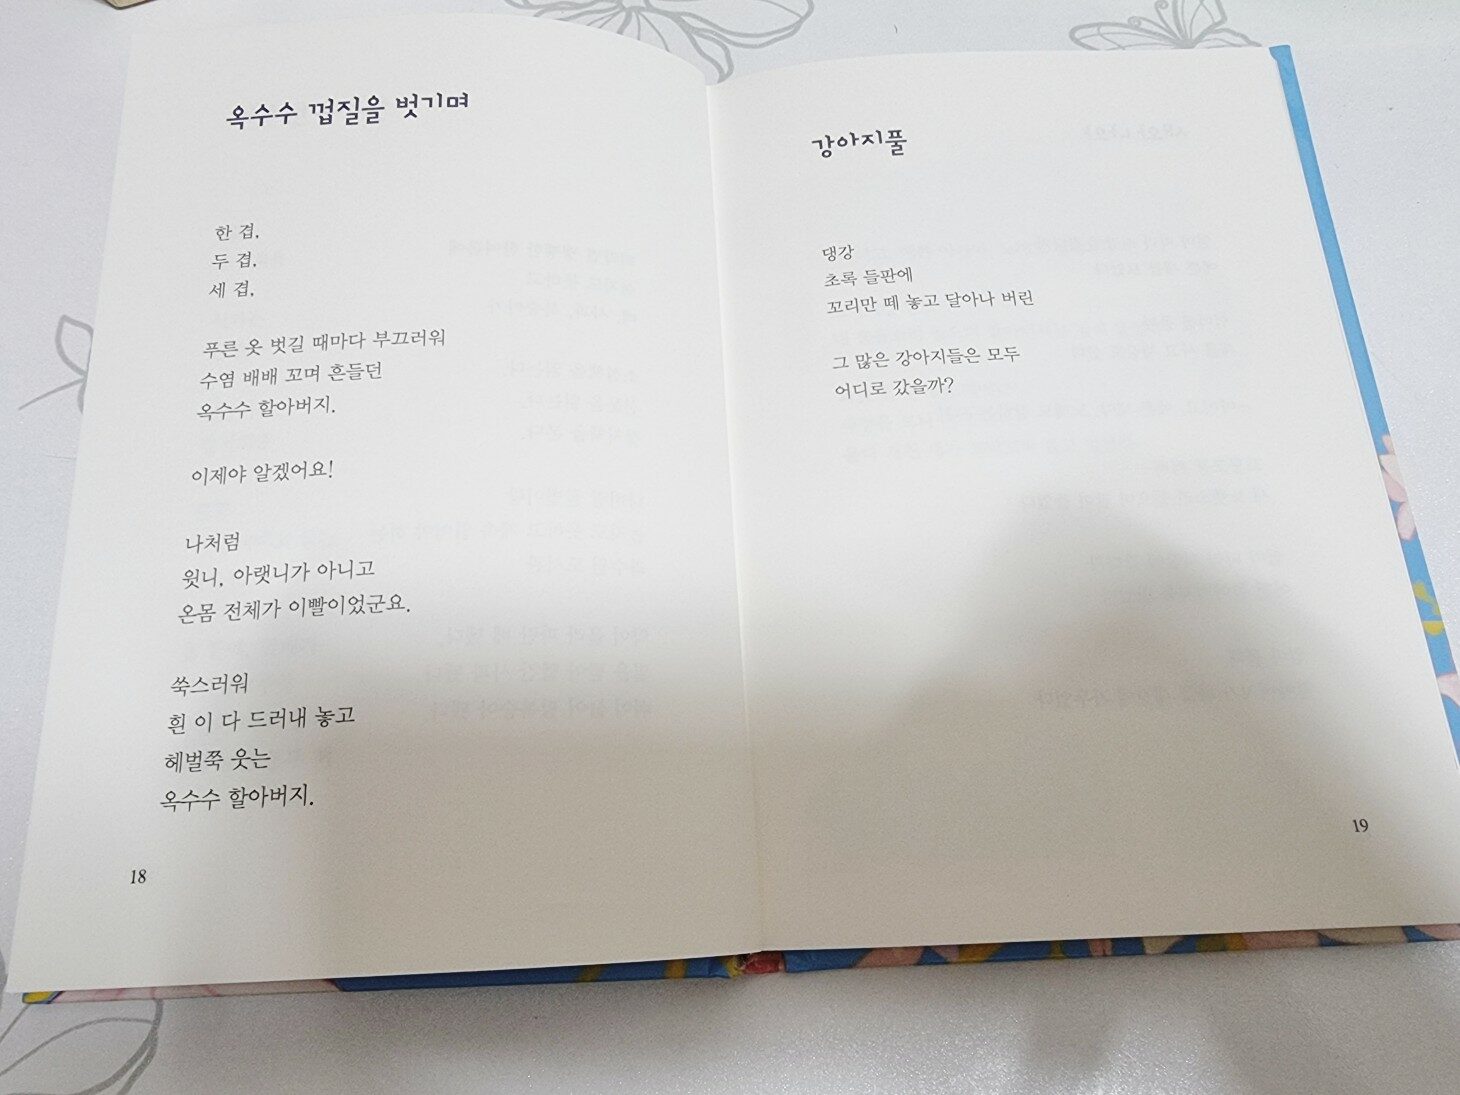 옥수수 껍질을 벗기며
한 겹,
두 겹,
세 겹,
푸른 옷 벗길 때마다 부끄러워
수염 배배 꼬며 흔들던
옥수수 할아버지.
이제야 알겠어요!
나처럼
윗니, 아랫니가 아니고
온몸 전체가 이빨이었군요.
쑥스러워
흰 이 다 드러내 놓고
헤벌쭉 웃는
옥수수 할아버지.
18
강아지풀
댕강
초록 들판에
꼬리만 떼 놓고 달아나 버린
그 많은 강아지들은 모두
어디로 갔을까?
19